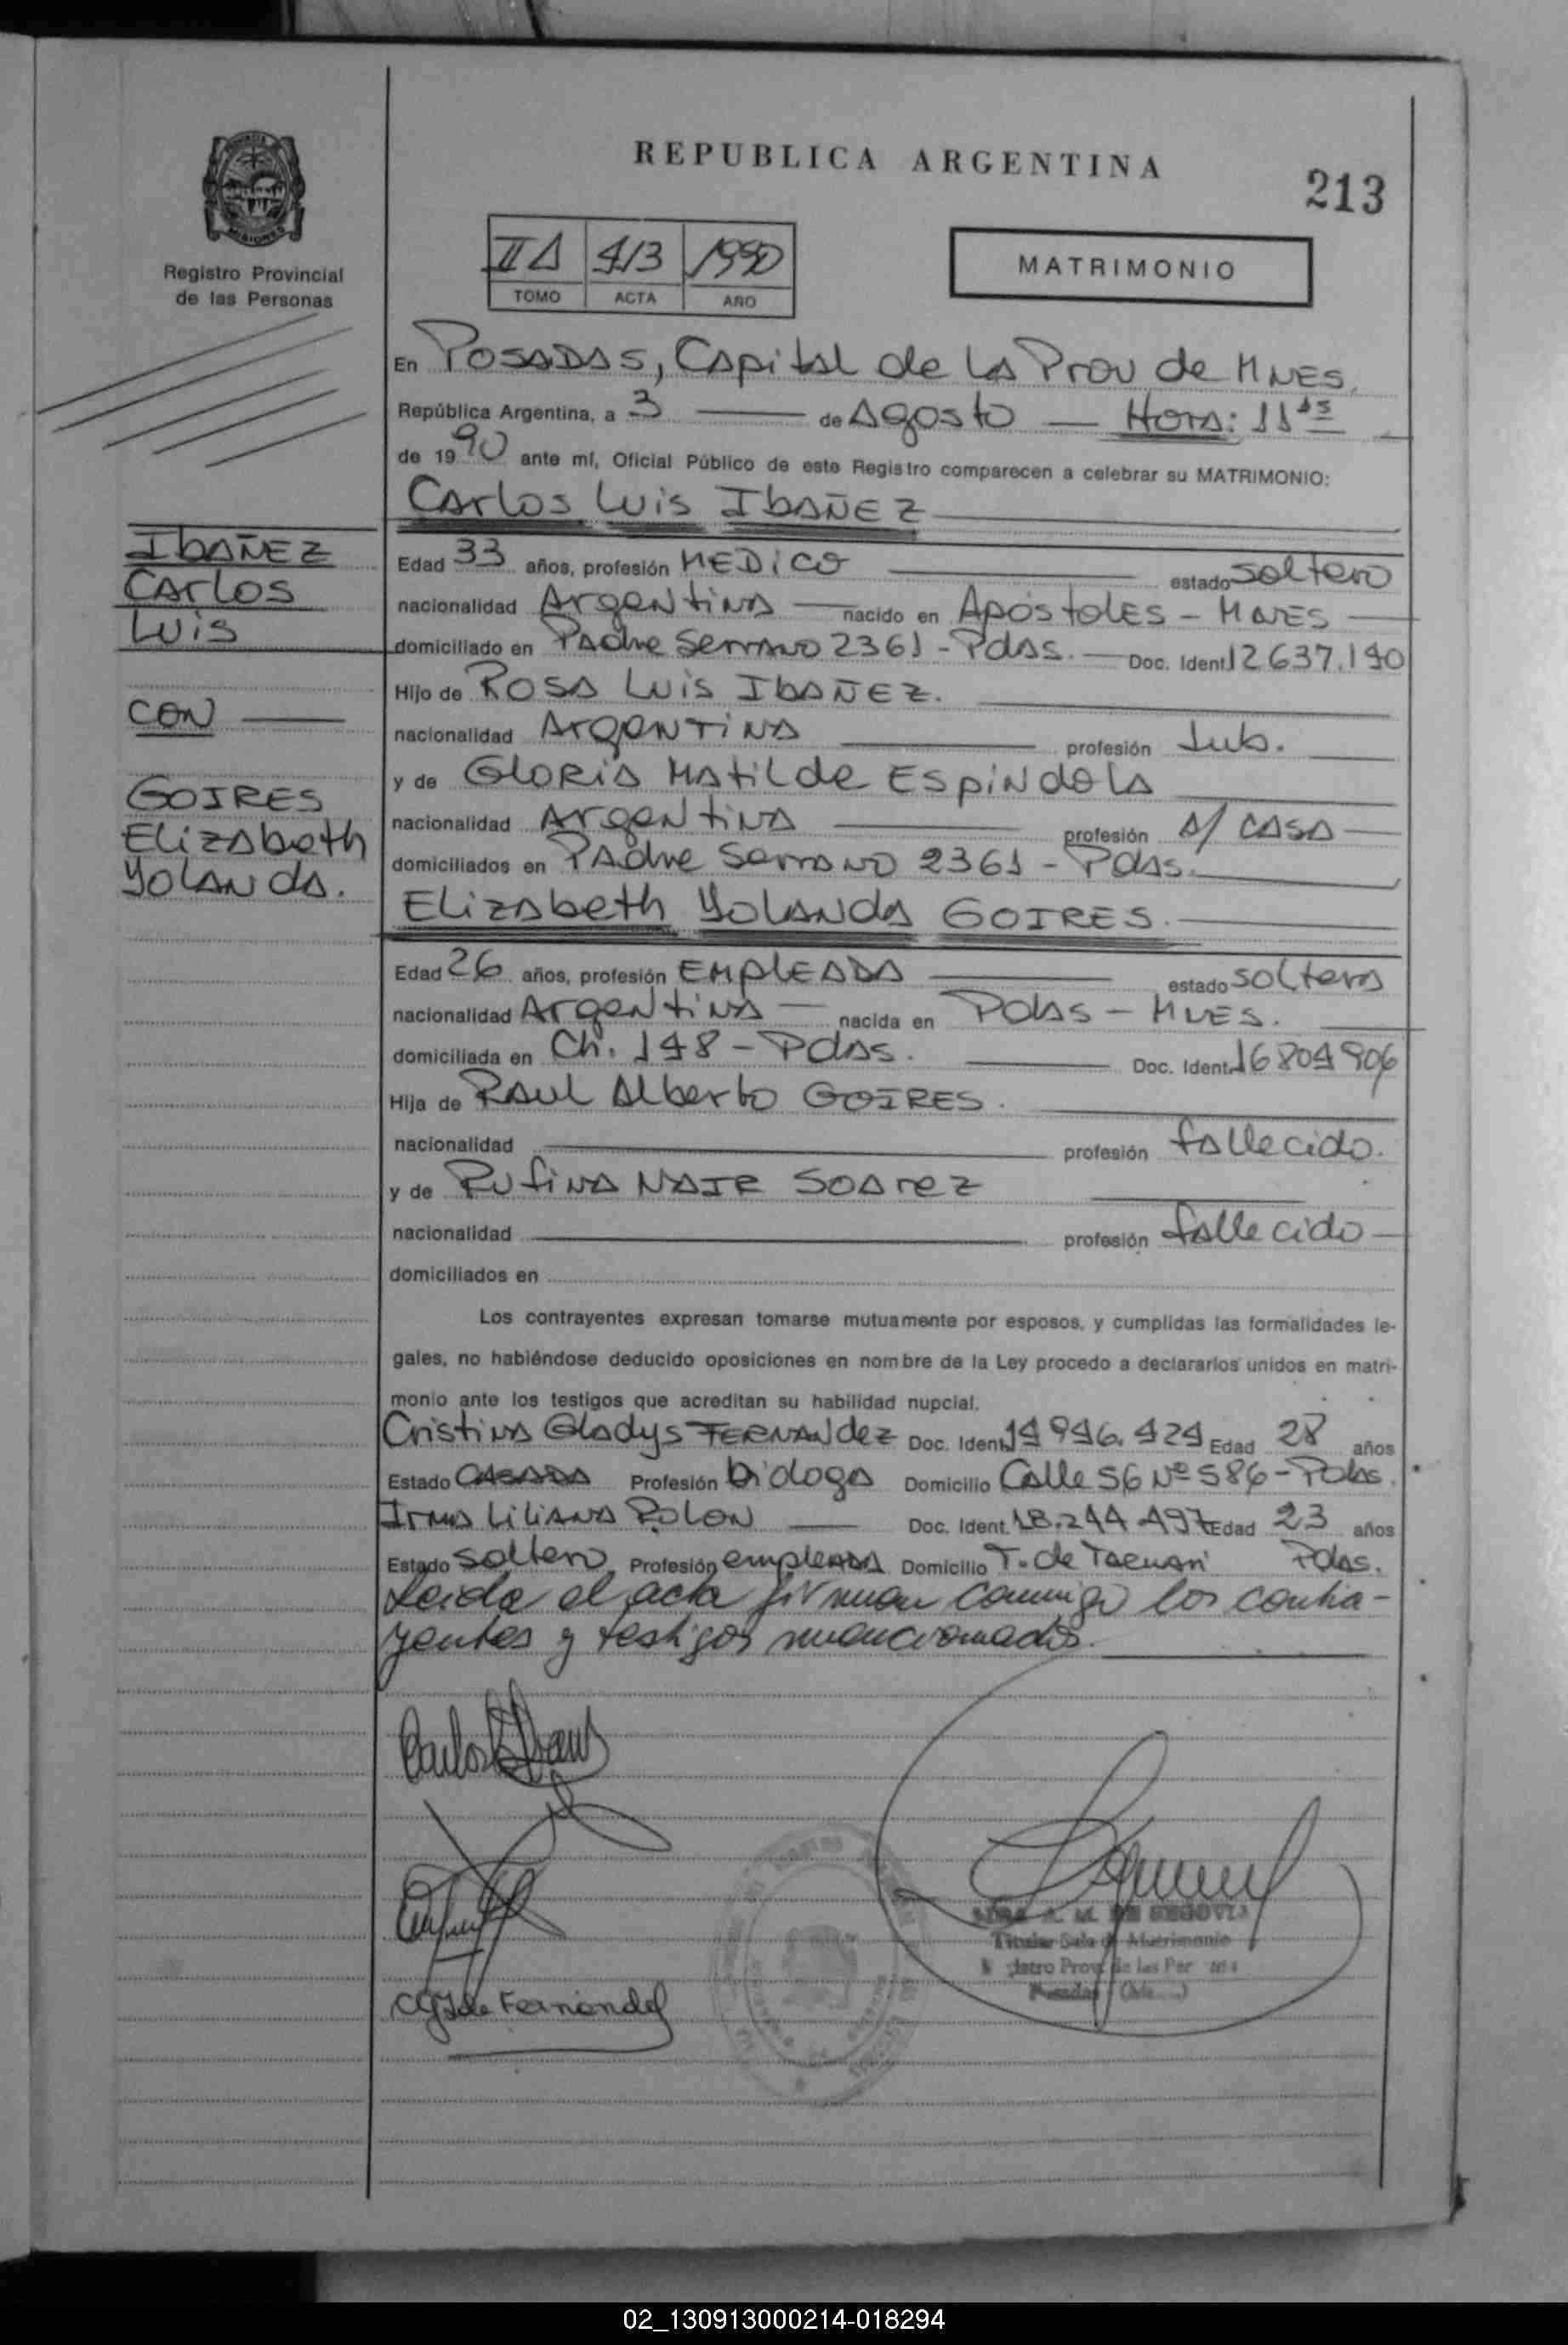 REPUBLICA ARGENTINA
213
MISIONES
Registro Provincial
de las Personas
II A 413 1990
TOMO ACTA AÑO
MATRIMONIO
En POSADAS, Capital de la Prov de MNES,
República Argentina, a 3 de Agosto Hora: 11 15
de 1990 ante mí, Oficial Público de este Registro comparecen a celebrar su MATRIMONIO:
Carlos Luis IBAÑEZ
IBAÑEZ
Carlos
Luis
CON
GOIRES
Elizabeth
Yolanda.
Edad 33 años, profesión MEDICO estado soltero
nacionalidad Argentina nacido en Apóstoles - MNES
domiciliado en Padre Serrano 2361 - Pdas. Doc. Ident. 12.637.190
Hijo de ROSA Luis IBAÑEZ.
nacionalidad Argentina profesión Jub.
y de GLORIA Matilde Espindola
nacionalidad Argentina profesión A/ CASA
domiciliados en Padre Serrano 2361 - Pdas.
Elizabeth Yolanda GOIRES.
Edad 26 años, profesión EMPLEADA estado soltera
nacionalidad Argentina nacida en Pdas - MNES.
domiciliada en Ch. 148 - Pdas. Doc. Ident. 16804906
Hija de Raul Alberto GOIRES.
nacionalidad profesión fallecido.
y de Rufina NAIR Soarez
nacionalidad profesión fallecido
domiciliados en
Los contrayentes expresan tomarse mutuamente por esposos, y cumplidas las formalidades le-
gales, no habiéndose deducido oposiciones en nombre de la Ley procedo a declararlos unidos en matri-
monio ante los testigos que acreditan su habilidad nupcial.
Cristina Gladys FERNANdez Doc. Ident. Edad 28 años
Estado CASADA Profesión bióloga Domicilio Calle 56 Nº 586 - Pdas.
Irma Liliana ROLON Doc. Ident. 18.244.497 Edad 23 años
Estado soltera Profesión empleada Domicilio T. de Tacuari Pdas.
Leida el acta firman conmigo los contra-
yentes y testigos mencionados.
A. M. DE SEGOVIA
Titular Sala de Matrimonio
Prov. de las Per
Posadas
Fernández
02_130913000214-018294